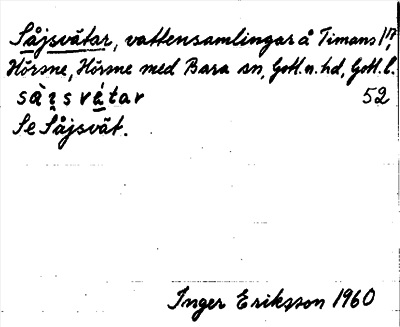 Såjsvätar, vattensamlingar å Timans 1/7,
Hörsne, Hörsne med Bara sn, Gotl. n. hd, Gotl. l.
såi̯svätar 52
Se Såjsvät.
Inger Eriksson 1960